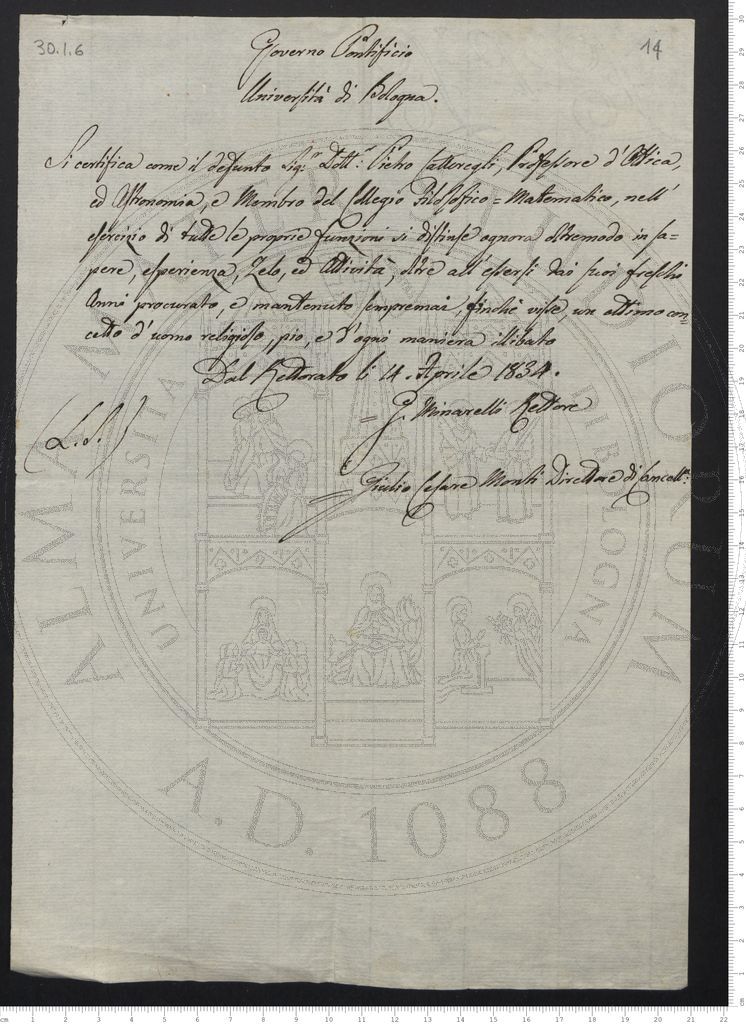 30.1.6
14
Governo Pontificio
Università di Bologna.
Si certifica come il defunto Sigr. Dottr. Pietro Caturegli, Professore d'Ottica,
ed Astronomia, e Membro del Collegio Filosofico = Matematico, nell'
esercizio di tutte le proprie funzioni si distinse ognora oltremodo in sa=
pere, esperienza, Zelo, ed Attività, oltre all'essersi dai suoi freschi
Anni procurato, e mantenuto sempremai, finchè visse, un ottimo con=
cetto d'uomo religioso, pio, e d'ogni maniera illibato
Dal Rettorato li 14. Aprile 1834.
G. Minarelli Rettore
(L.S.)
Giulio Cesare Monti Direttore di Cancellª.
ALMA MATER STUDIORUM
UNIVERSITÀ DI BOLOGNA
A.D. 1088